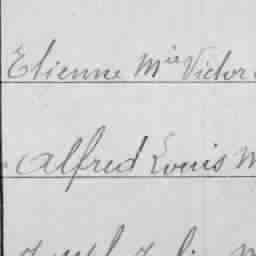 Etienne Mie Victor
Alfred Louis M